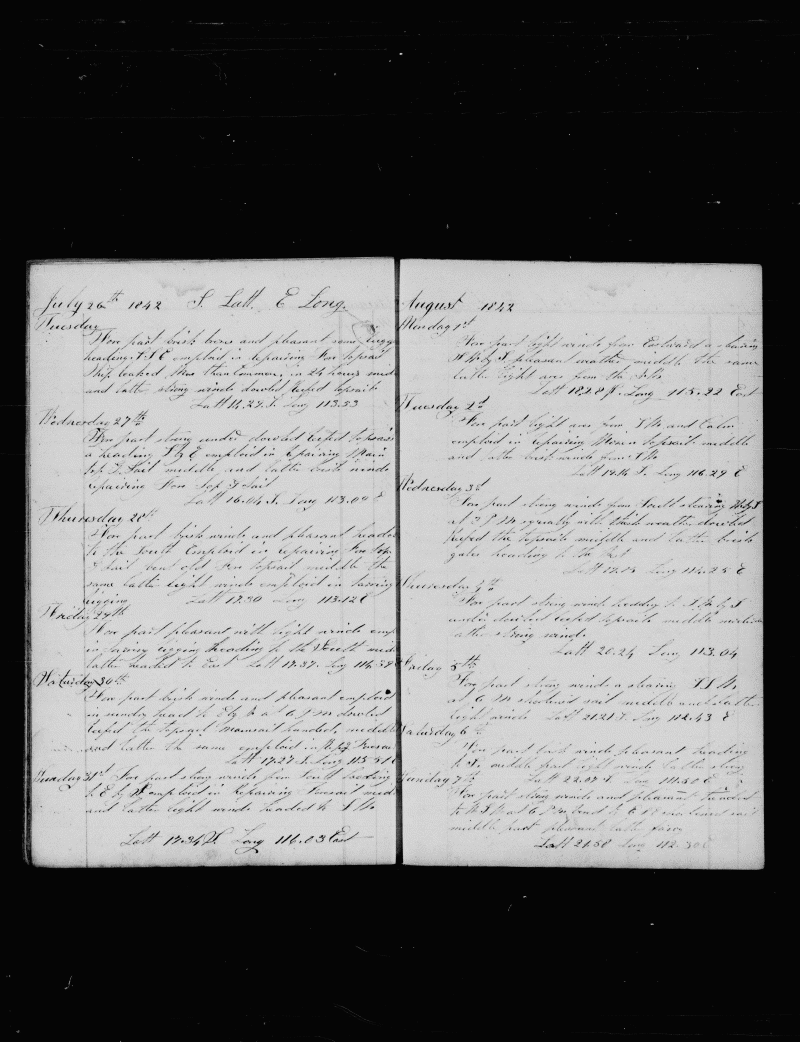 July 26th 1842 S. Latt. E Long.
Tuesday
Fore part brisk breeze and pleasant some
heading S S E emploid in repairing Fore topsail
Ship leaked More than Common, in 24 hours midd
and latter strong winds dowbel reefed topsails
Latt 14.29 S. Long 113.33
Wednesday 27th
Fore part strong under dowbel reefed topsails
a heading S E emploid in repairing Main
top G. Sail middle and latter brisk winds
repairing Fore Top G Sail
Latt 16.04 S. Long 113.00 E
Thursday 28th
Fore part brisk winds and pleasant headed
to the South Emploid in repairing Fore top
G Sail bent old Fore topsail middle the
same latter light winds emploid in
rigging Latt 17.30 Long 113.12 E
Friday 29th
Fore part pleasant with light winds emp
in rigging heading to the South midd
latter headed to East Latt 17.37. Long 114.
Saturday 30th
Fore part brisk winds and pleasant emploid
in headed E by S at 6 P M dowbel
reefed the topsail Mainsail handed, middle
and latter the same emploid in Foresail
Latt 17.27 S. Long 115
Sunday 31st Fore part strong winds from South heading
emploid in Repairing Foresail midd
and latter light winds headed to S W
Latt 17.34 S. Long 116.03 East
August 1842
Monday 1st
Fore part light winds from Eastward a stearing
pleasant weather middle the same
latter light ares from the
Latt 18.28 S. Long 115.22 East
Tuesday 2d
Fore part light ares from S W and Calm
emploid in repairing Mizen topsail middle
and latter brisk winds from S W
Latt 19.14 S. Long 116.29 E
Wednesday 3d
Fore part strong winds from South stearing
at 3 P M squally with weather dowbel
reefed the topsails middle and latter brisk
gales heading to the
Latt Long 114.25 E
Thursday 4th
Fore part strong winds hedding to
under dowbel reefed topsails middle
latter strong winds.
Latt 20.24 Long 113.04
Friday 5th
Fore part strong winds a stearing S S W
at 6 P M shortned sail middle and latter
light winds Latt 21.21 S. Long 112.43 E
Saturday 6th
Fore part brisk winds pleasant heading
to S. middle part light winds latter strong
Sunday 7th Latt 22.07 S. Long 111.50 E
Fore part strong winds and pleasant headed
to at 6 P M shortened sail
middle part pleasant latter
Latt 21.50 Long 112.30 E